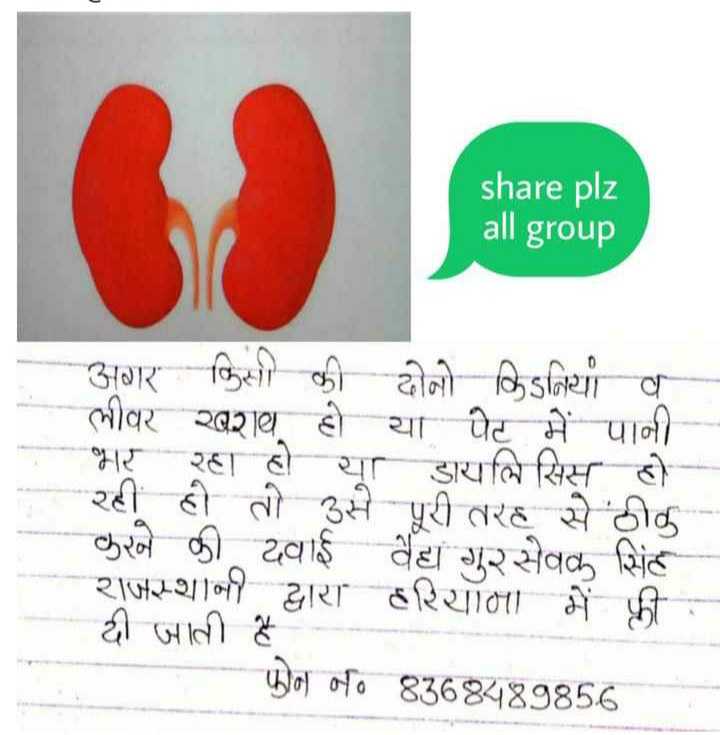 share plz
all group
अगर किसी की दोनो किडनियां व
लीवर खराब हो या पेट में पानी
भर रहा हो या डायलिसिस हो
रही हो तो उसे पूरी तरह से ठीक
करने की दवाई वैद्य गुरसेवक सिंह
राजस्थानी द्वारा हरियाणा में फ्री
दी जाती है
फोन न० 8368489856